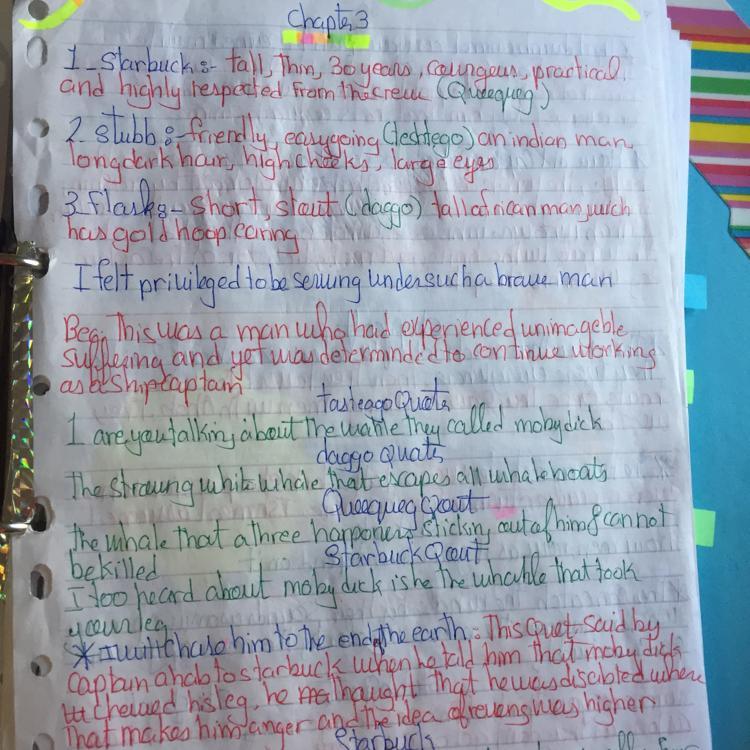 Chapter 3
1 - Starbuck :- tall, thin, 30 years, courgeus, practical,
and highly respected from the crew (Queequeg)
2 stubb :- friendly, easygoing (teshtego) an indian man
long dark hair, high cheeks, large eyes
3 Flask :- Short, stout (daggo) tall african man
has gold hoop earing
I felt priviliged to be serving under such a brave man
Beg: This was a man who had experienced unimageble
suffering and yet was determinded to continue working
as a ship captain
tasteago Quote
1 are you talking about the wahle they called moby dick
daggo quats
the strowng white whale that escapes all whale boats
Queequeg Qout
the whale that a three happoners sticking out of him & cannot
be killed
Starbuck Qout
I too heard about moby dick is he the whahle that took
your leg
* I will chase him to the end of the earth : This Quet said by
Captain ahab to starbuck when he told him that moby dick
chewed his leg, he thought that he was discibled where
That makes him anger and the idea of reveng was higher
Starbuck